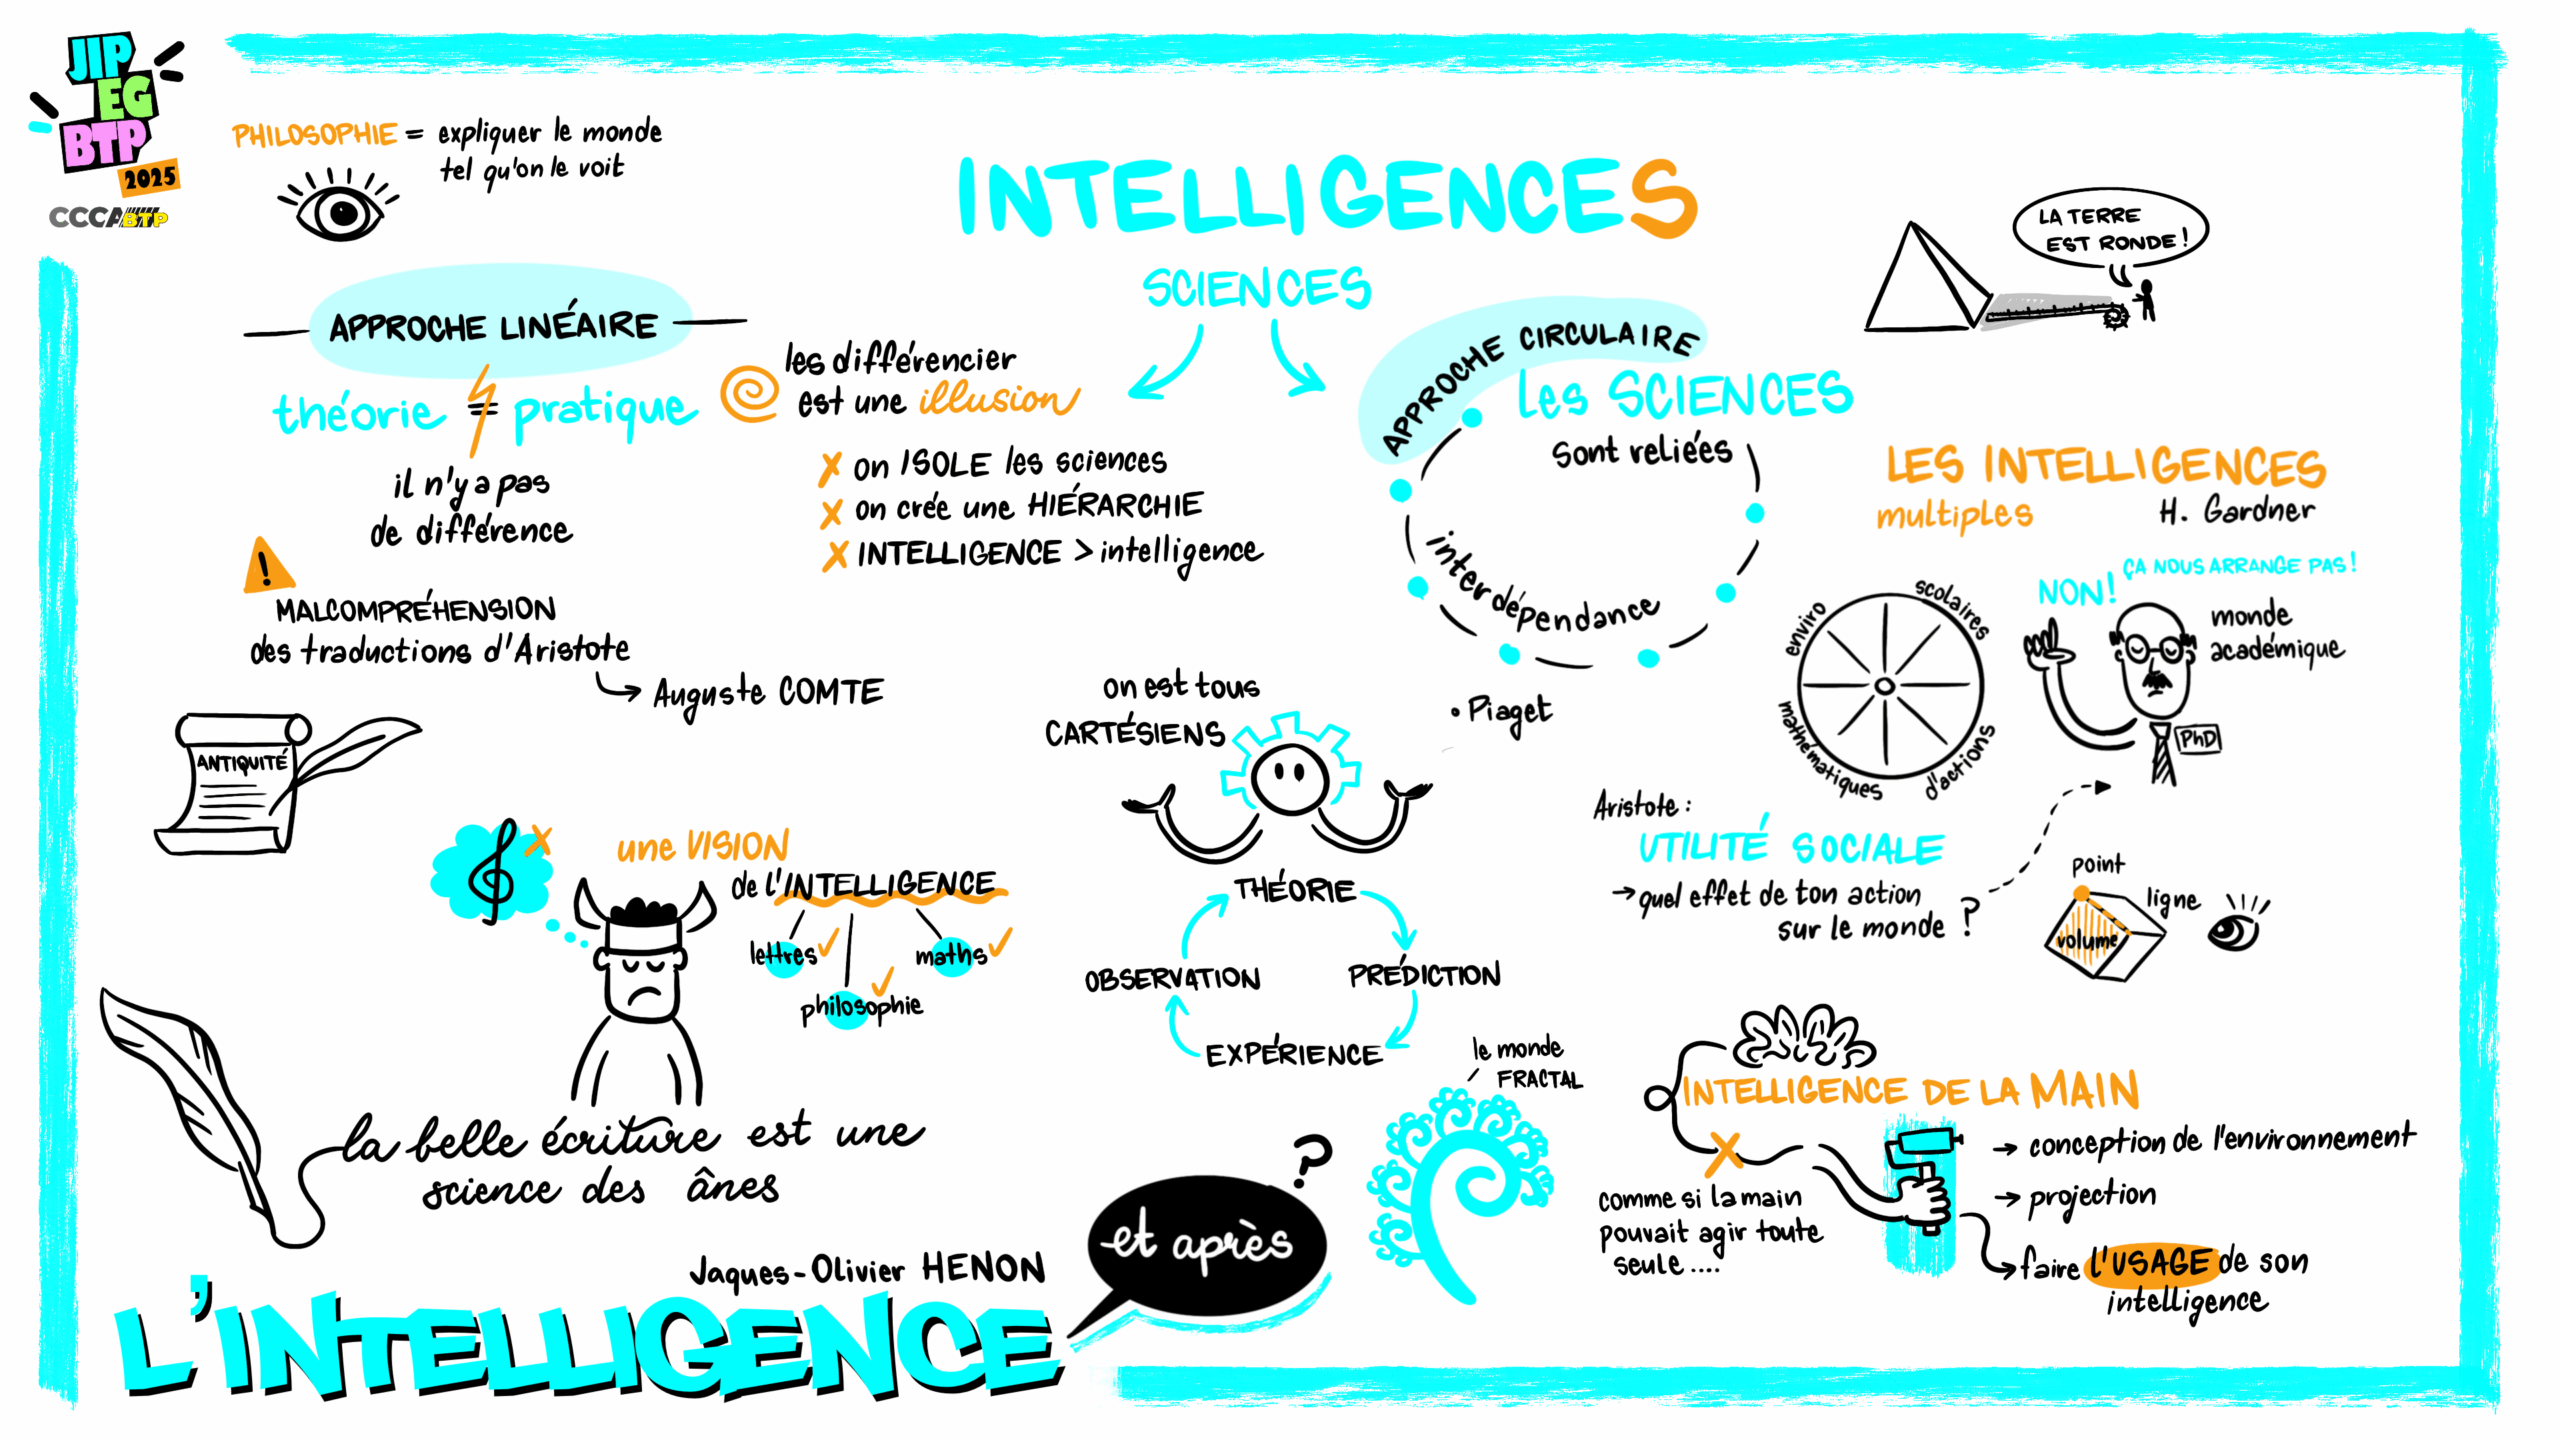 JIP
EG
BTP
2025
CCCA BTP
PHILOSOPHIE = expliquer le monde
tel qu'on le voit
INTELLIGENCES
SCIENCES
LA TERRE
EST RONDE !
APPROCHE LINÉAIRE
théorie = pratique
il n'y a pas
de différence
les différencier
est une illusion
x on ISOLE les sciences
x on crée une HIÉRARCHIE
x INTELLIGENCE > intelligence
!
MALCOMPRÉHENSION
des traductions d'Aristote
→ Auguste COMTE
ANTIQUITÉ
APPROCHE CIRCULAIRE
les SCIENCES
sont reliées
interdépendance
• Piaget
LES INTELLIGENCES
multiples H. Gardner
NON! ÇA NOUS ARRANGE PAS !
monde
académique
PhD
enviro
scolaires
mathématiques
d'actions
on est tous
CARTÉSIENS
THÉORIE
PRÉDICTION
EXPÉRIENCE
OBSERVATION
Aristote :
UTILITÉ SOCIALE
→ quel effet de ton action
sur le monde ?
point
ligne
volume
une VISION
de l'INTELLIGENCE
lettres
philosophie
maths
la belle écriture est une
science des ânes
le monde
FRACTAL
INTELLIGENCE DE LA MAIN
comme si la main
pouvait agir toute
seule ....
→ conception de l'environnement
→ projection
→ faire l'USAGE de son
intelligence
Jaques-Olivier HENON
L'INTELLIGENCE
et après
?